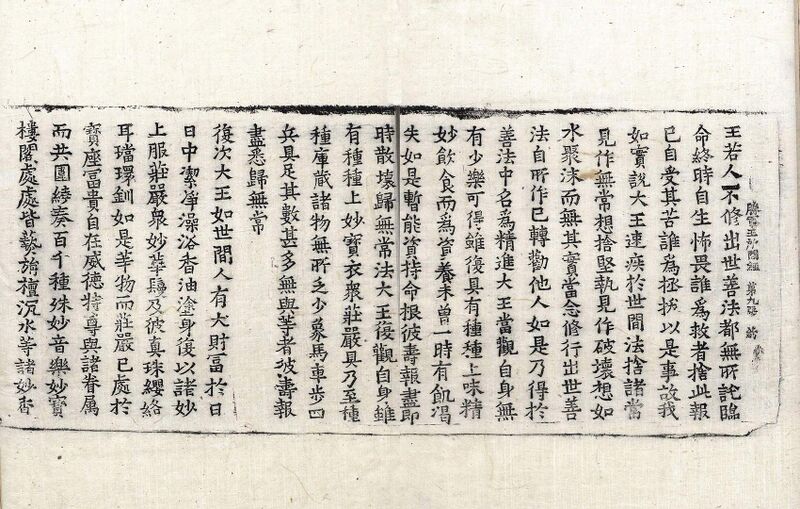 勝軍王所問經 第九張
王若人不修出世善法都無所託臨
命終時自生怖畏誰爲救者捨此報
已自受其苦誰爲拯拔以是事故我
如實說大王速疾於世間法捨諸常
見作無常想捨堅執見作破壞想如
水聚沫而無其實當念修行出世善
法自所作已轉勸他人如是乃得於
善法中名爲精進大王當觀自身無
有少樂可得雖復具有種種上味精
妙飲食而爲資養未曾一時有飢渴
失如是暫能資持命根彼壽報盡即
時散壞歸無常法大王復觀自身雖
有種種上妙寶衣衆莊嚴具乃至種
種庫藏諸物無所乏少象馬車步四
兵具足其數甚多無與等者彼壽報
盡悉歸無常
復次大王如世間人有大財富於日
日中潔淨澡浴香油塗身復以諸妙
上服莊嚴衆妙華鬘及彼真珠纓絡
耳璫環釧如是等物而莊嚴已處於
寶座富貴自在威德特尊與諸眷屬
而共圍繞奏百千種殊妙音樂妙寶
樓閣處處皆爇旃檀沉水等諸妙香